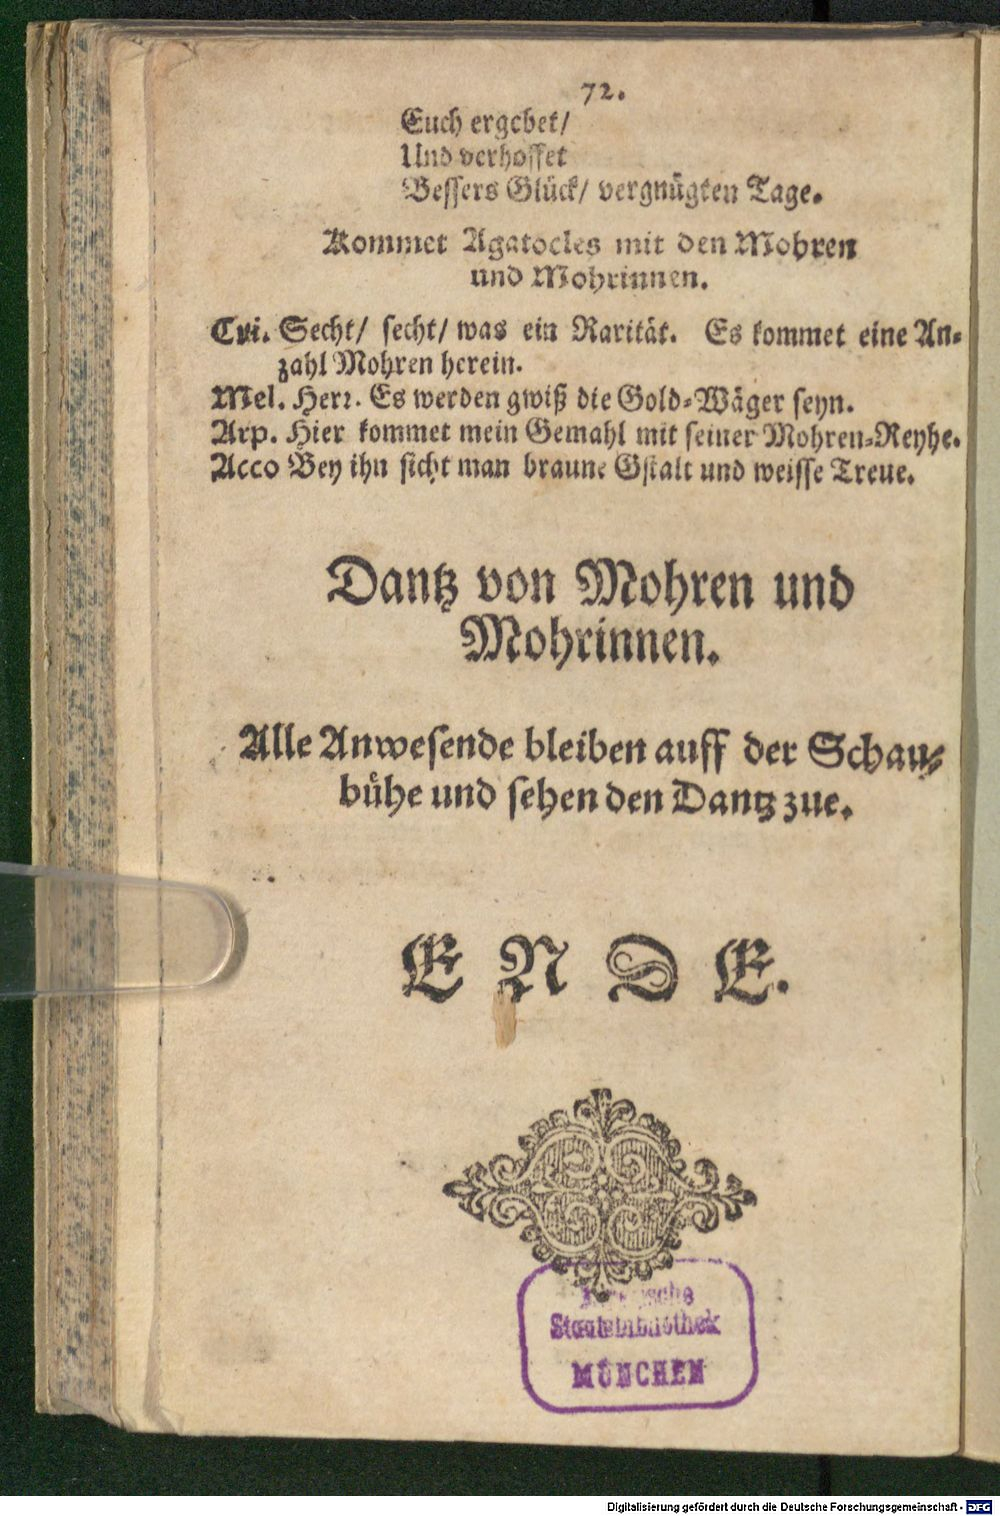 72.
Euch ergebet/
Und verhoffet
Bessers Glück/ vergnügten Tage.
Kommet Agatocles mit den Mohren
und Mohrinnen.
Cvi. Secht/ secht/ was ein Rarität. Es kommet eine An-
zahl Mohren herein.
Mel. Herr. Es werden gwiß die Gold-Wäger seyn.
Arp. Hier kommet mein Gemahl mit seiner Mohren-Reyhe.
Acco Bey ihn sicht man braune Gstalt und weisse Treue.
Dantz von Mohren und
Mohrinnen.
Alle Anwesende bleiben auff der Schau-
bühe und sehen den Dantz zue.
E N D E.
Staatsbibliothek
MÜNCHEN
Digitalisierung gefördert durch die Deutsche Forschungsgemeinschaft - DFG